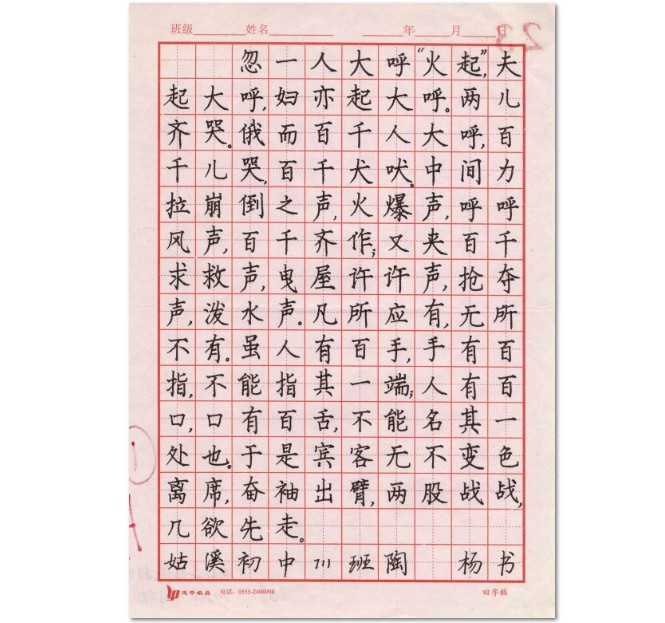 班级 姓名 年 月 日
23
忽一人大呼“火起”,夫
起大呼,妇亦起大呼。两儿
齐哭。俄而百千人大呼,百
千儿哭,百千犬吠。中间力
拉崩倒之声,火爆声,呼呼
风声,百千齐作;又夹百千
求救声,曳屋许许声,抢夺
声,泼水声。凡所应有,无所
不有。虽人有百手,手有百
指,不能指其一端;人有百
口,口有百舌,不能名其一
处也。于是宾客无不变色
离席,奋袖出臂,两股战战,
几欲先走。
姑溪初中 111 班陶 杨书
电话: 0555-2408098
四字格